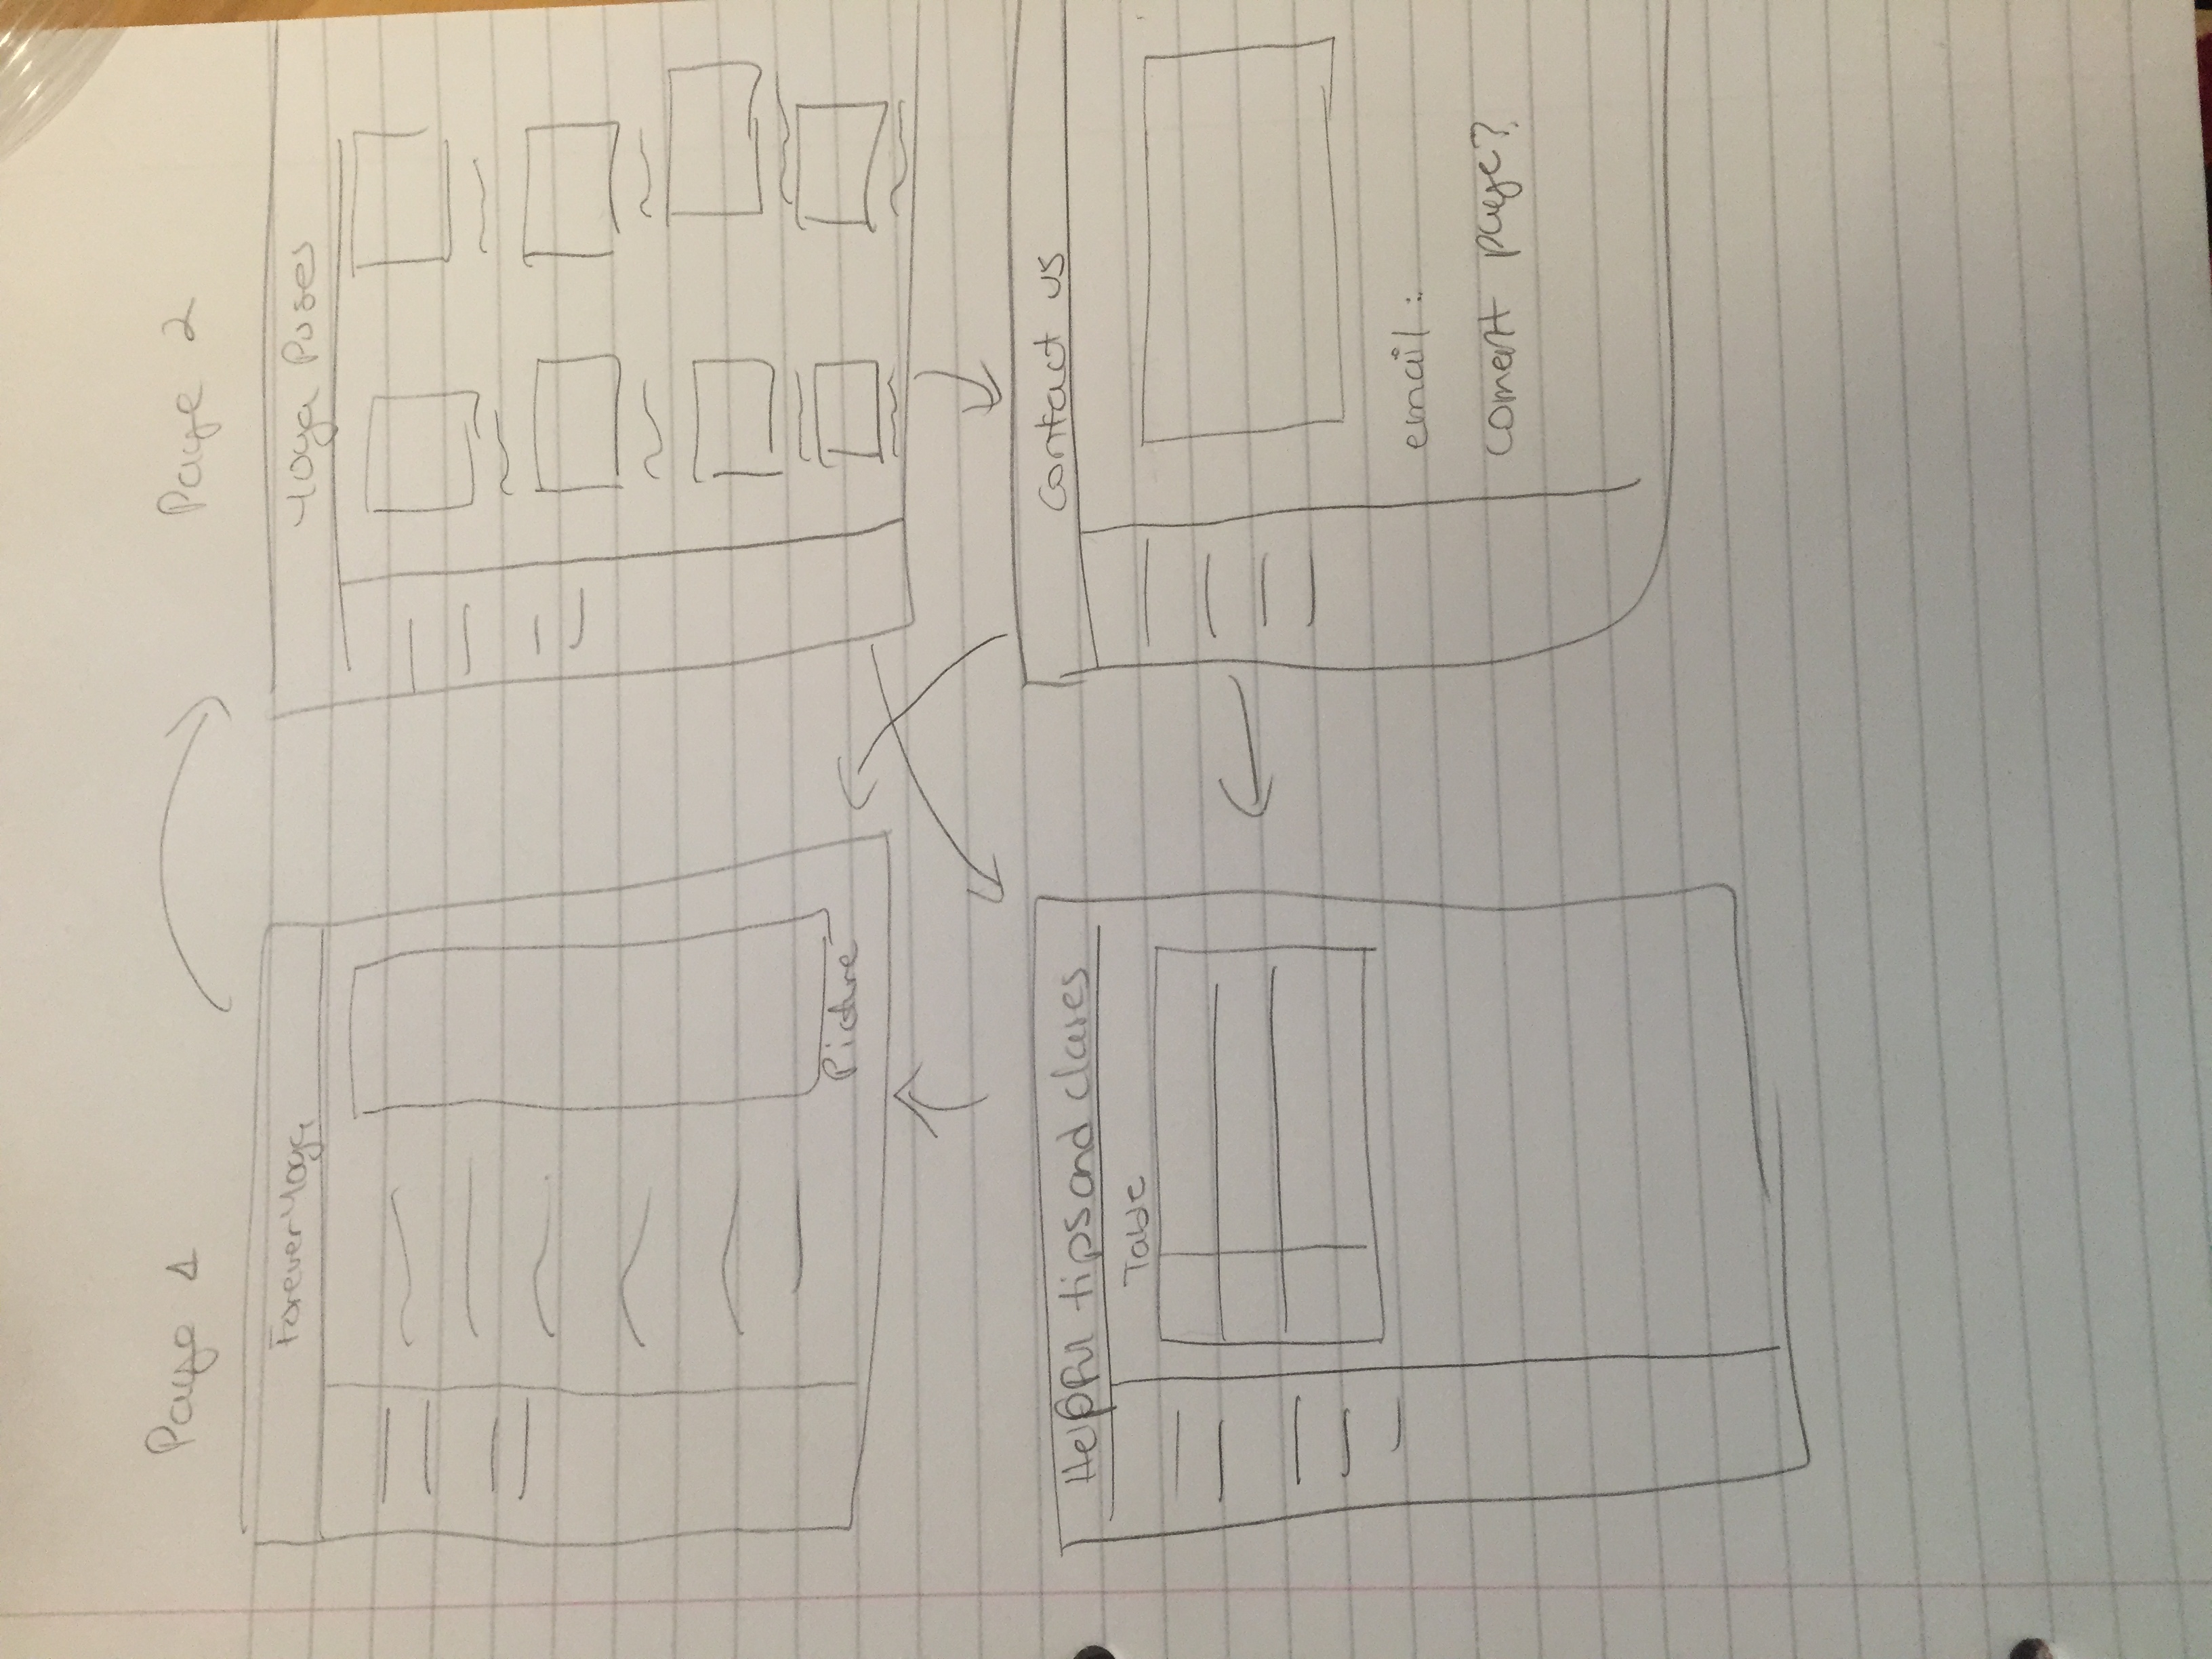 Page 1
Page 2
Forever Yoga
Yoga Poses
Picture
Helpful tips and classes
Table
Contact us
email :
coment page?